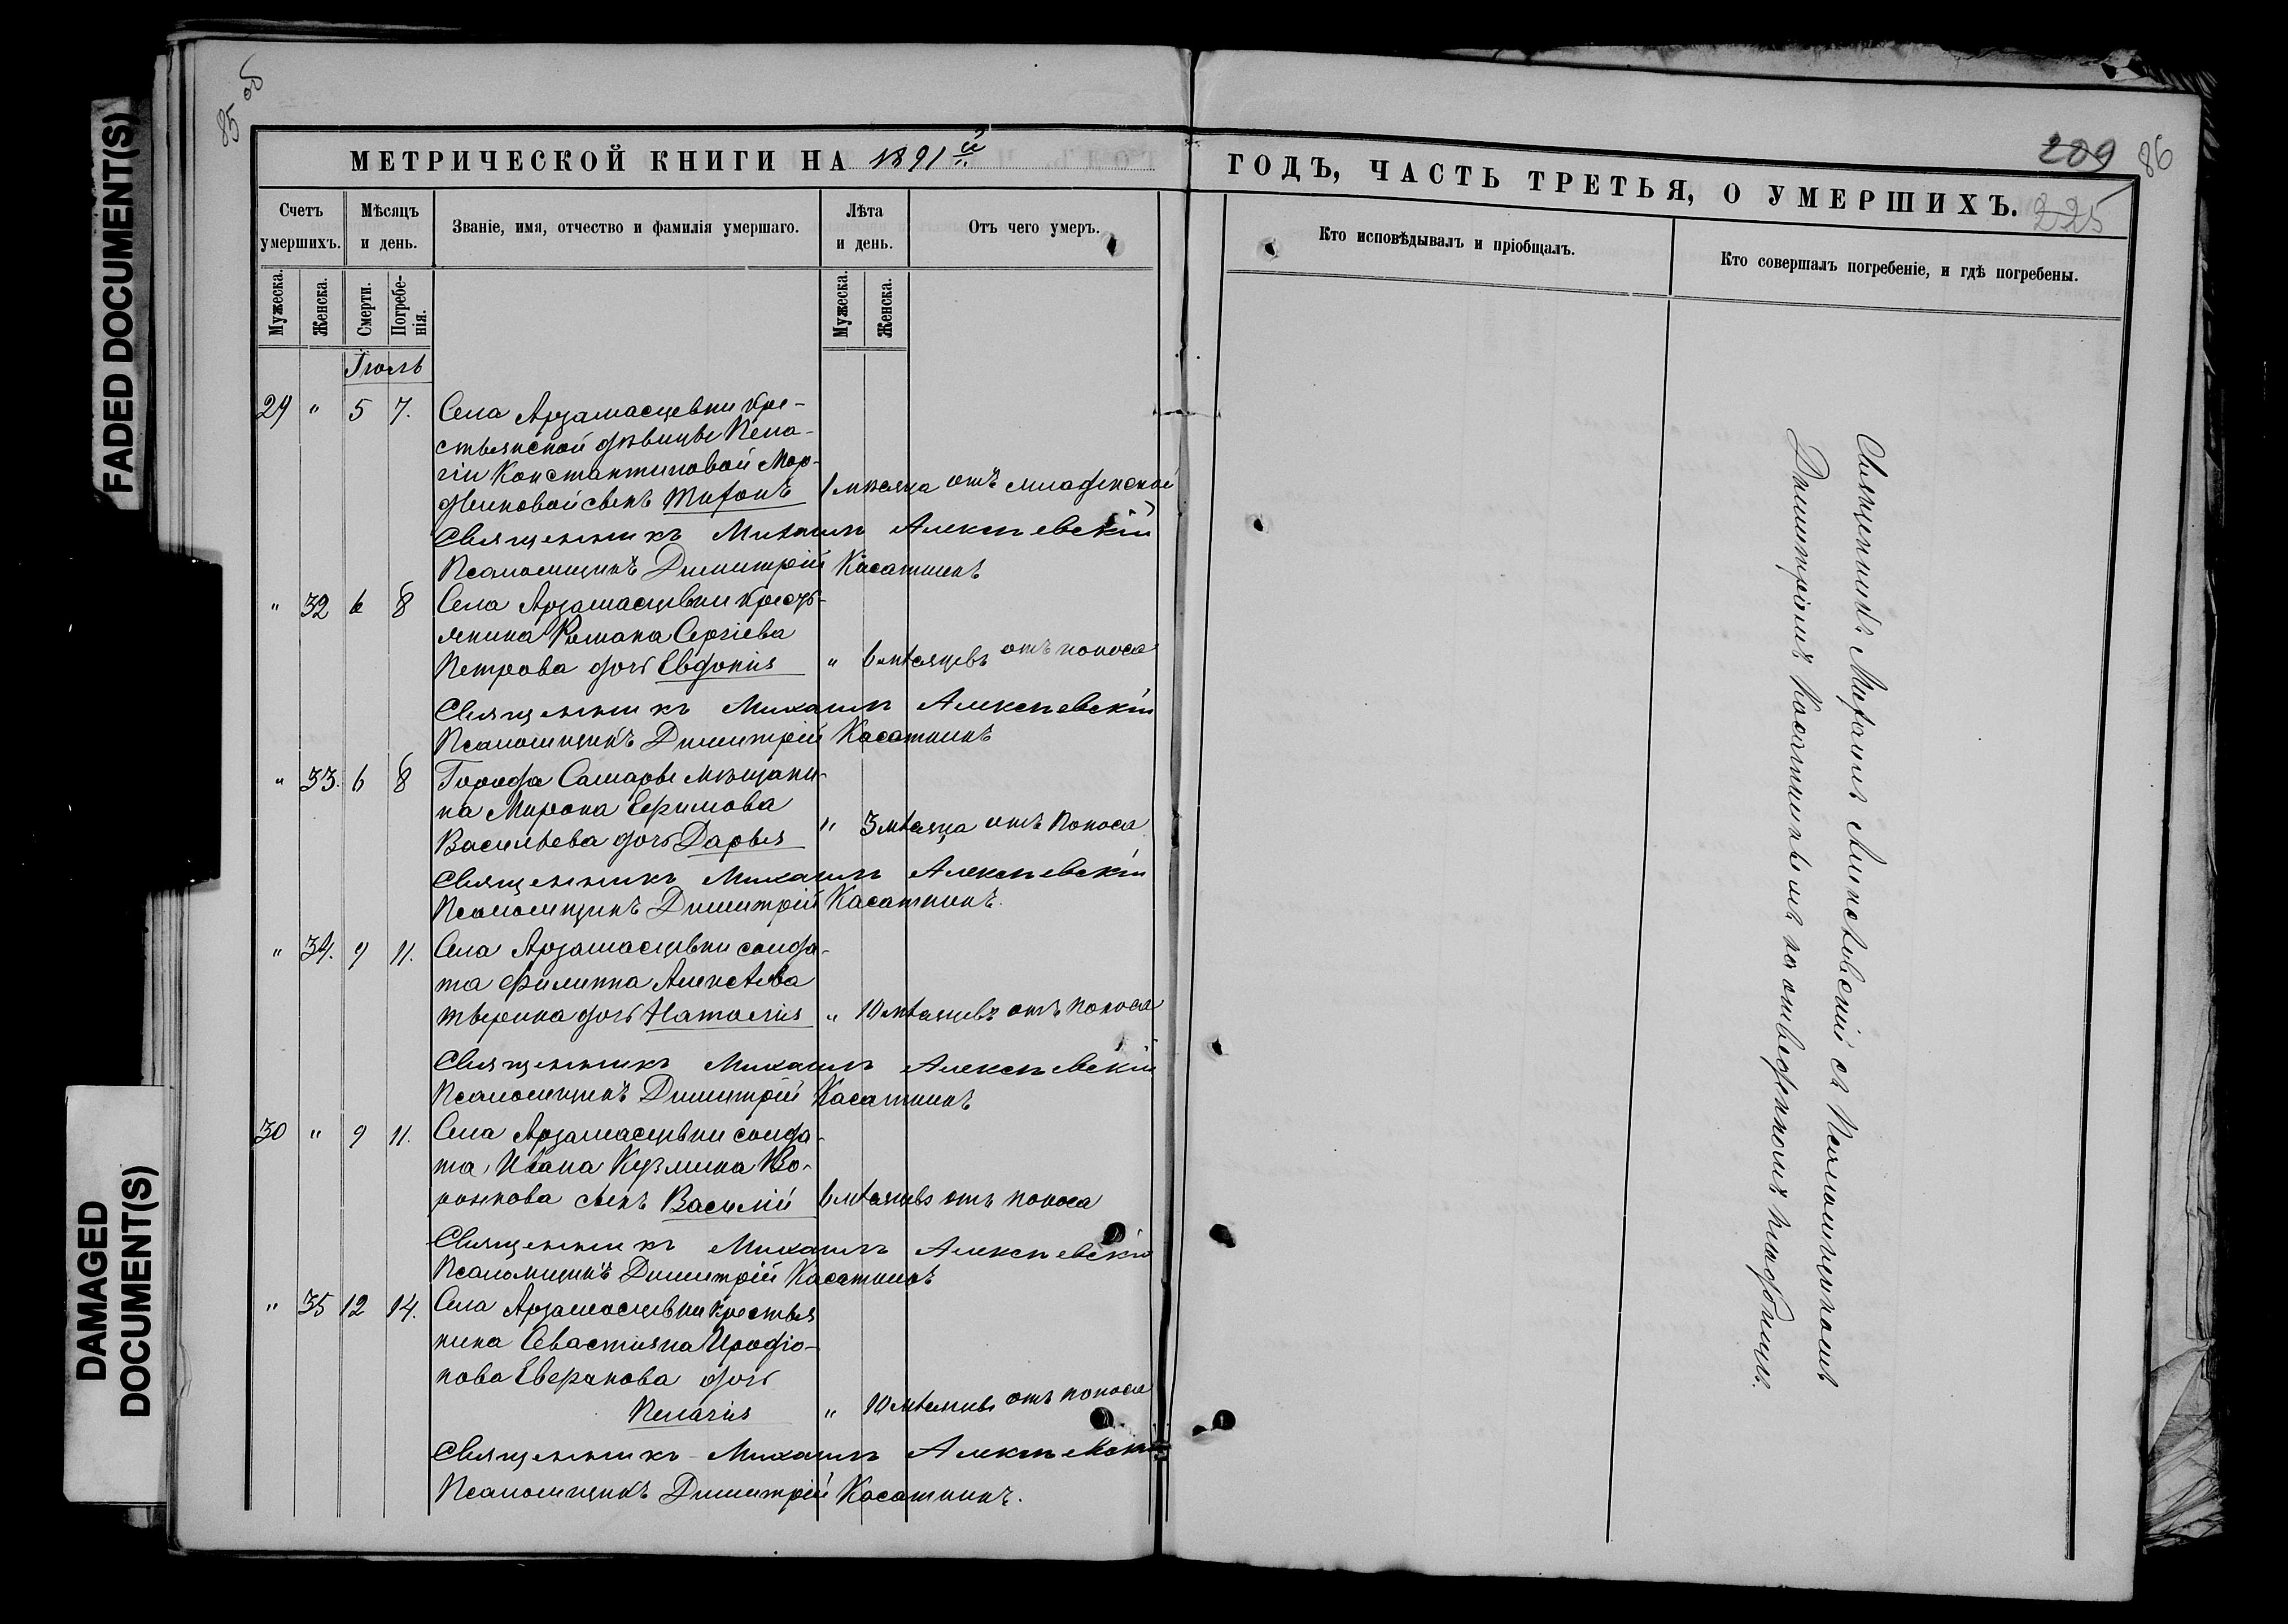 FADED DOCUMENT(S)
DAMAGED
DOCUMENT(S)
85 об
МЕТРИЧЕСКОЙ КНИГИ НА 1891й
Счетъ умершихъ.
Мѣсяцъ и день.
Званіе, имя, отчество и фамилія умершаго.
Лѣта и день.
Отъ чего умеръ.
Мужеска.
Женска.
Смерти.
Погребенія.
Мужеска.
Женска.
Іюль
29 " 5 7. Села Арзамасцевки кре-
стьянской дѣвицы Пела-
гіи Константиновой Мор-
двиновой сынъ Тифонъ 1 мѣсяца отъ младенской
Священникъ Михаилъ Алексѣевскій
Псаломщикъ Димитрій Касаткинъ
" 32 6 8 Села Арзамасцевки кресть-
янина Романа Сергіева
Петрова дочь Евдокія " 6 мѣсяцевъ отъ поноса
Священникъ Михаилъ Алексѣевскій
Псаломщикъ Димитрій Касаткинъ
" 33. 6 8 Города Самары мѣщани-
на Мирона Ефимова
Васильева дочь Дарья " 3 мѣсяца отъ поноса
Священникъ Михаилъ Алексѣевскій
Псаломщикъ Димитрій Касаткинъ.
" 34. 9 11. Села Арзамасцевки солда-
та Филиппа Алексѣева
Тверина дочь Наталія " 10 мѣсяцевъ отъ поноса
Священникъ Михаилъ Алексѣевскій
Псаломщикъ Димитрій Касаткинъ
30 " 9 11. Села Арзамасцевки солда-
та Ивана Кузмина Во-
ронкова сынъ Василій 6 мѣсяцевъ отъ поноса
Священникъ Михаилъ Алексѣевскій
Псаломщикъ Димитрій Касаткинъ
" 35 12 14. Села Арзамасцевки крестья
нина Севастияна Иродіо-
нова Аверьянова дочь
Пелагія " 10 мѣсяцевъ отъ поноса
Священникъ Михаилъ Алексѣевскій
Псаломщикъ Димитрій Касаткинъ.
209 86
ГОДЪ, ЧАСТЬ ТРЕТЬЯ, О УМЕРШИХЪ.
225
Кто исповѣдывалъ и пріобщалъ.
Кто совершалъ погребеніе, и гдѣ погребены.
Священникъ Михаилъ Алексѣевскій съ Псаломщикомъ
Димитріемъ Касаткинымъ на отведенномъ кладбищѣ.